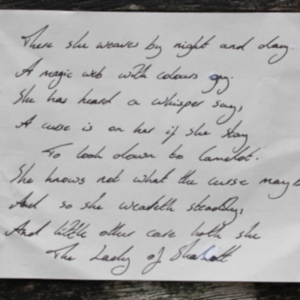 There she weaves by night and day
A magic web with colours gay.
She has heard a whisper say,
A curse is on her if she stay
To look down to Camelot.
She knows not what the curse may be
And so she weaveth steadily,
And little other care hath she
The Lady of Shalott